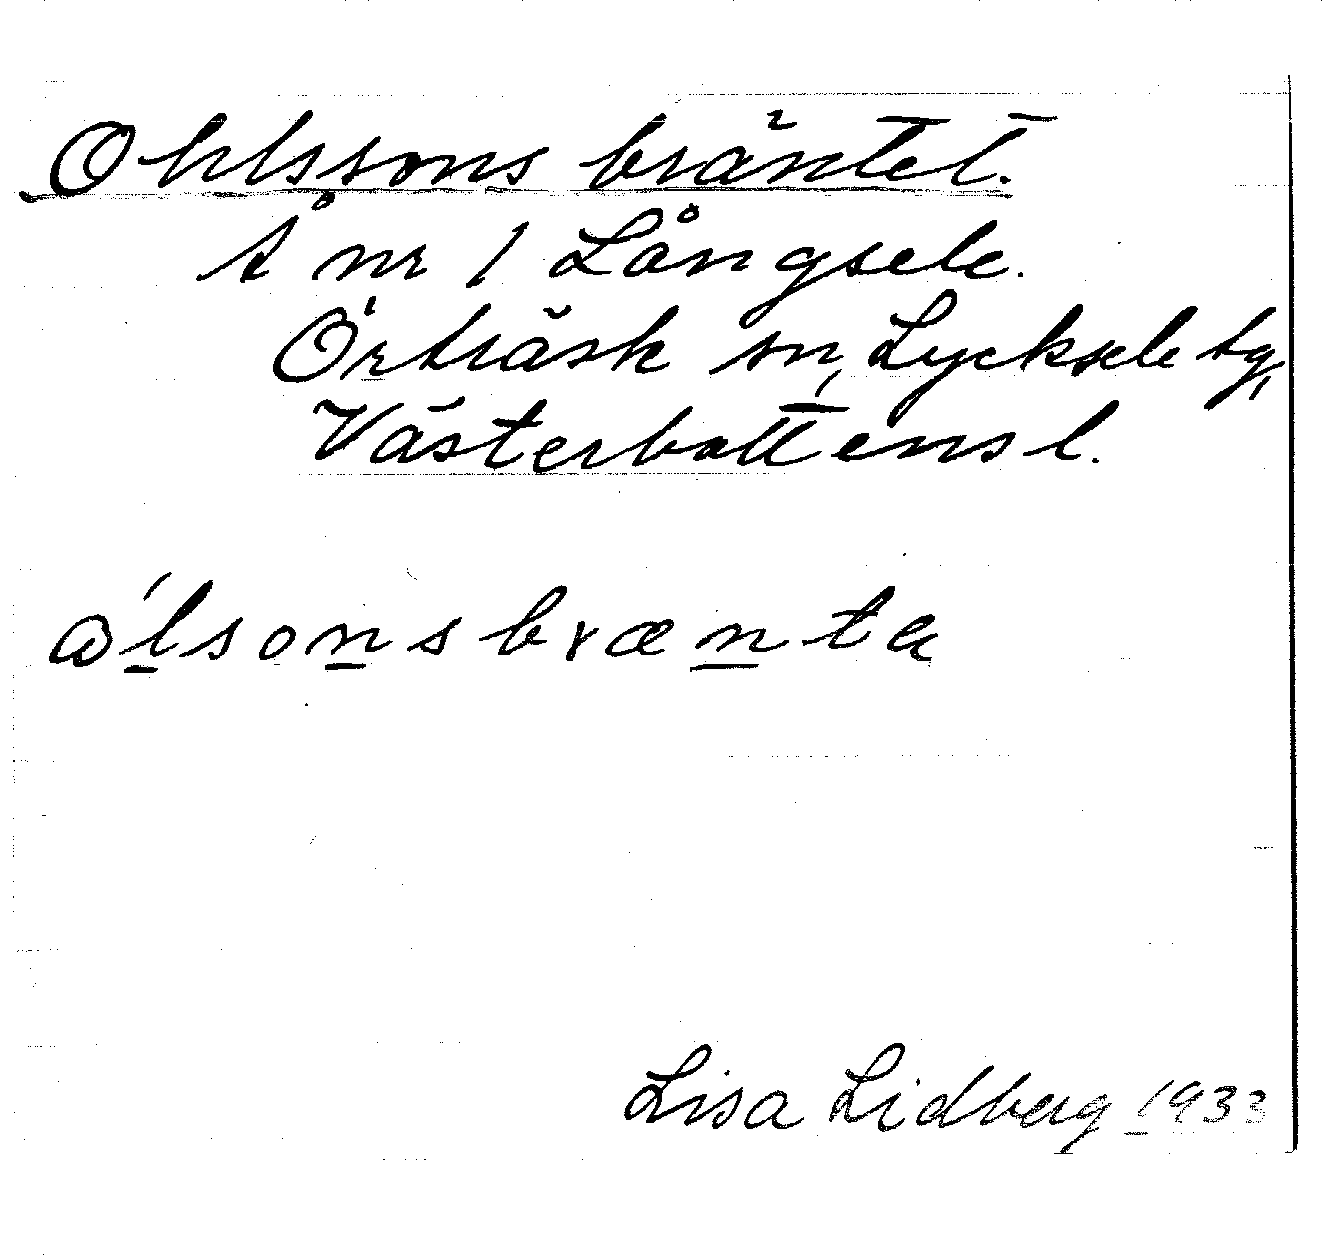 Ohlssons bräntet.
Å nr 1 Långsele.
Örträsk sn, Lycksele tg,
Västerbottens l.
ɷ́lsonsbrænta
Lisa Lidberg 1933